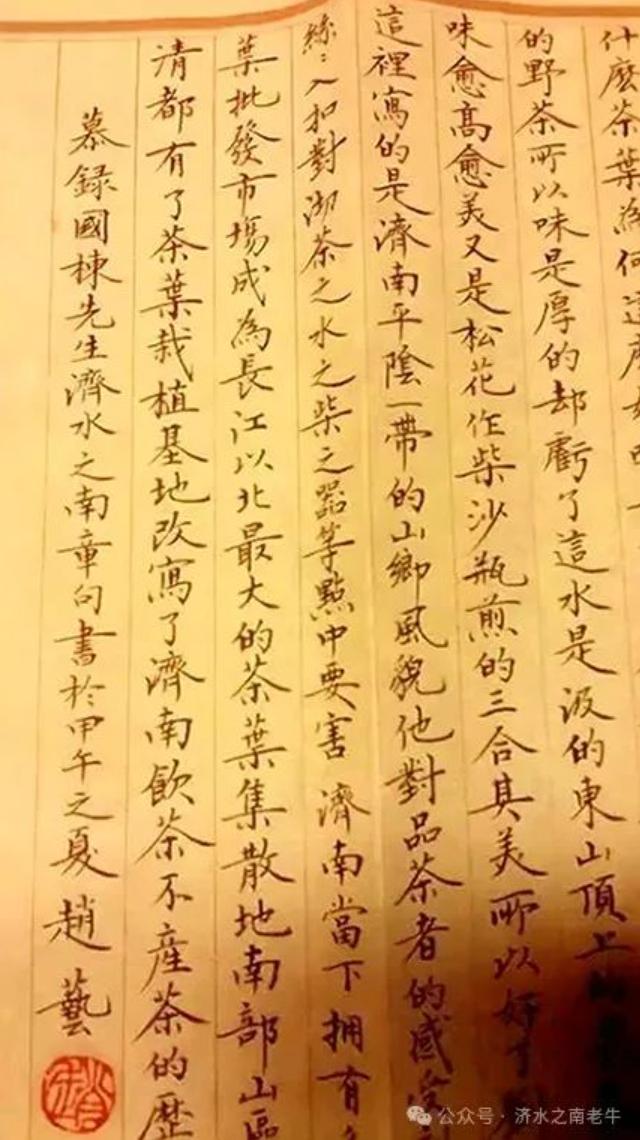 什麼茶葉為何這麼
的野茶所以味是厚的却虧了這水是汲的東山頂上
味愈高愈美又是松花作柴沙瓶煎的三合其美所以好了
這裡寫的是濟南平陰一帶的山鄉風貌他對品茶者的感受
絲〻入扣對沏茶之水之柴之器等點中要害 濟南當下拥有
葉批發市場成為長江以北最大的茶葉集散地南部山區
清都有了茶葉栽植基地改寫了濟南飲茶不產茶的歷
慕録國棟先生濟水之南章句書於甲午之夏趙藝
公众号·济水之南老牛